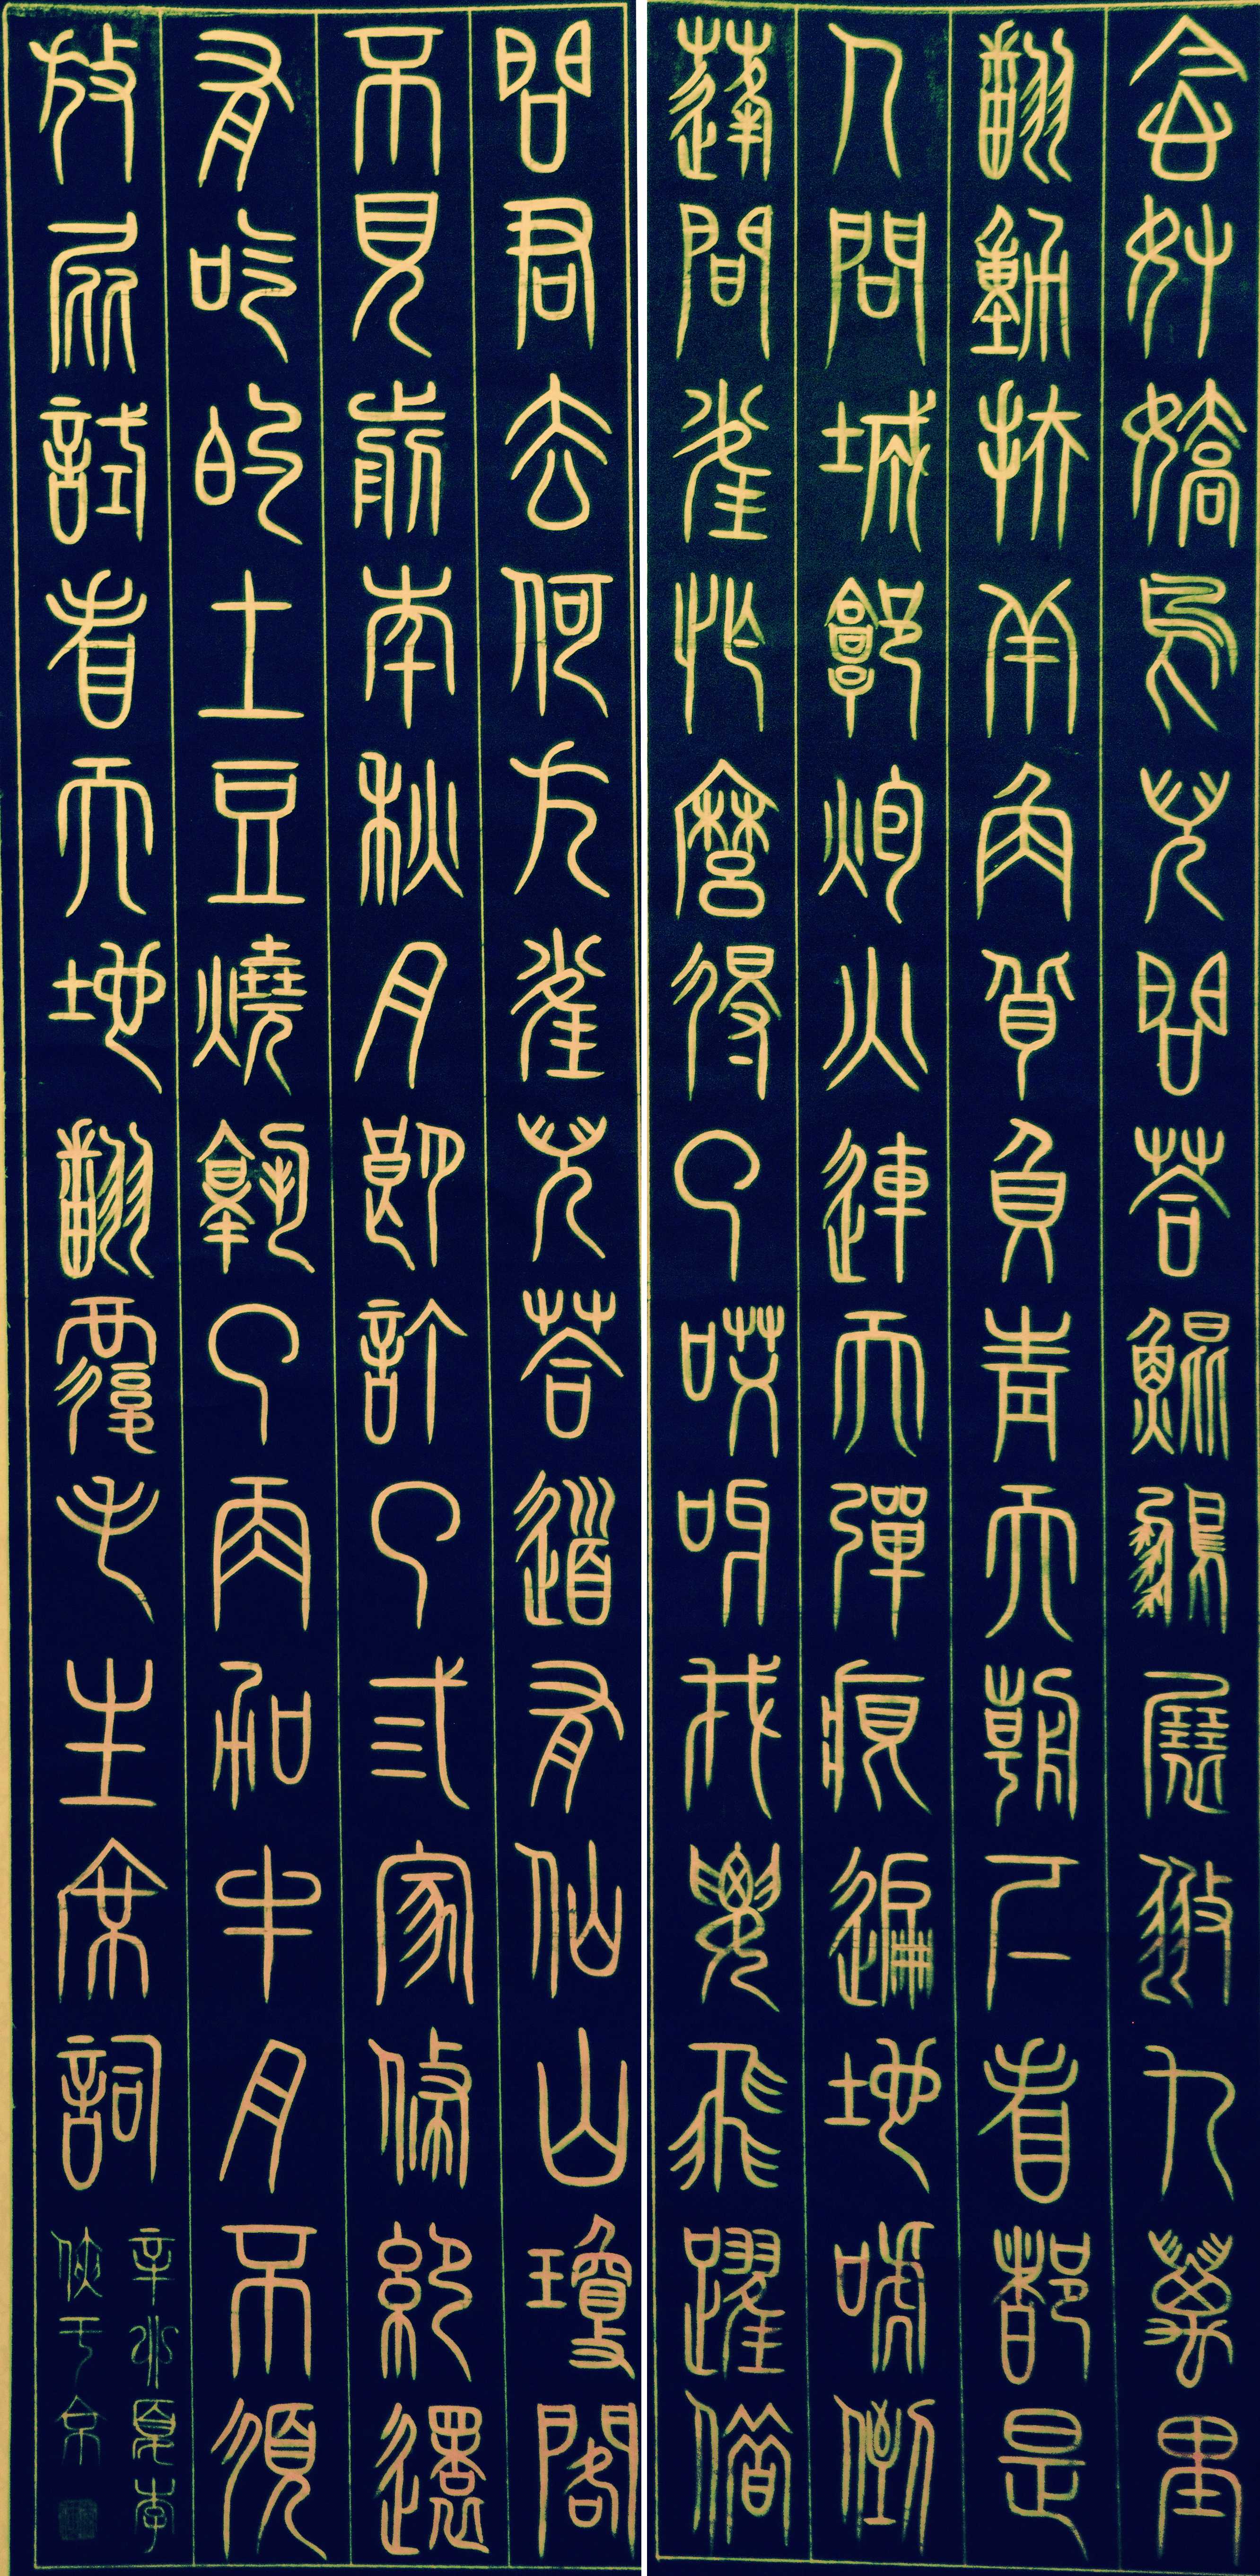 念奴嬌鳥兒問答鯤鵬展翅九萬里
翻動扶羊角背負青天朝下看都是
人問城郭炮火連天彈痕遍地嚇倒
蓬間雀怎麼得了哎呀我要飛躍借
問君去何方雀兒答道有仙山瓊閣
不見前年秋月朗訂了弎家條約還
有吃的土豆燒熟了再加牛肉不須
放屁試看天地翻覆毛主席詞
辛丑夏李
俠于京